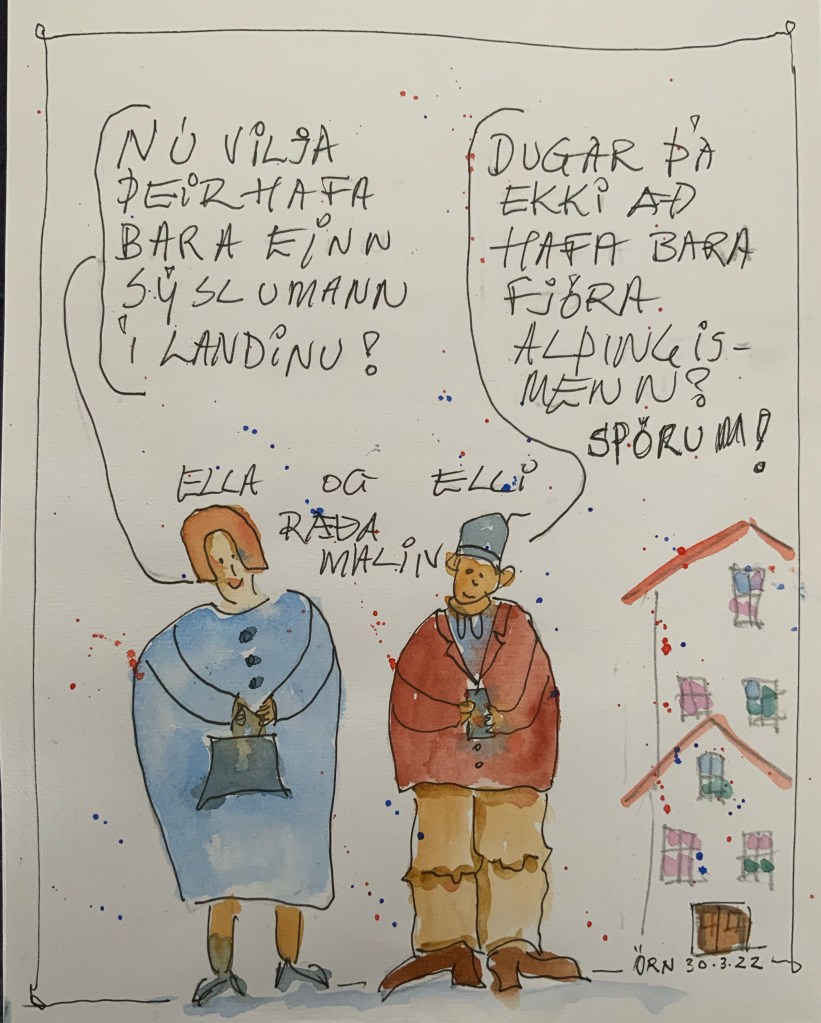 NÚ VILJA
ÞEIR HAFA
BARA EINN
SÝSLUMANN
Í LANDINU!
DUGAR ÞÁ
EKKI AÐ
HAFA BARA
FJÓRA
ALÞINGIS-
MENN?
SPÖRUM!
ELLA OG ELLI
RÆÐA
MALIN
ÖRN 30.3.22